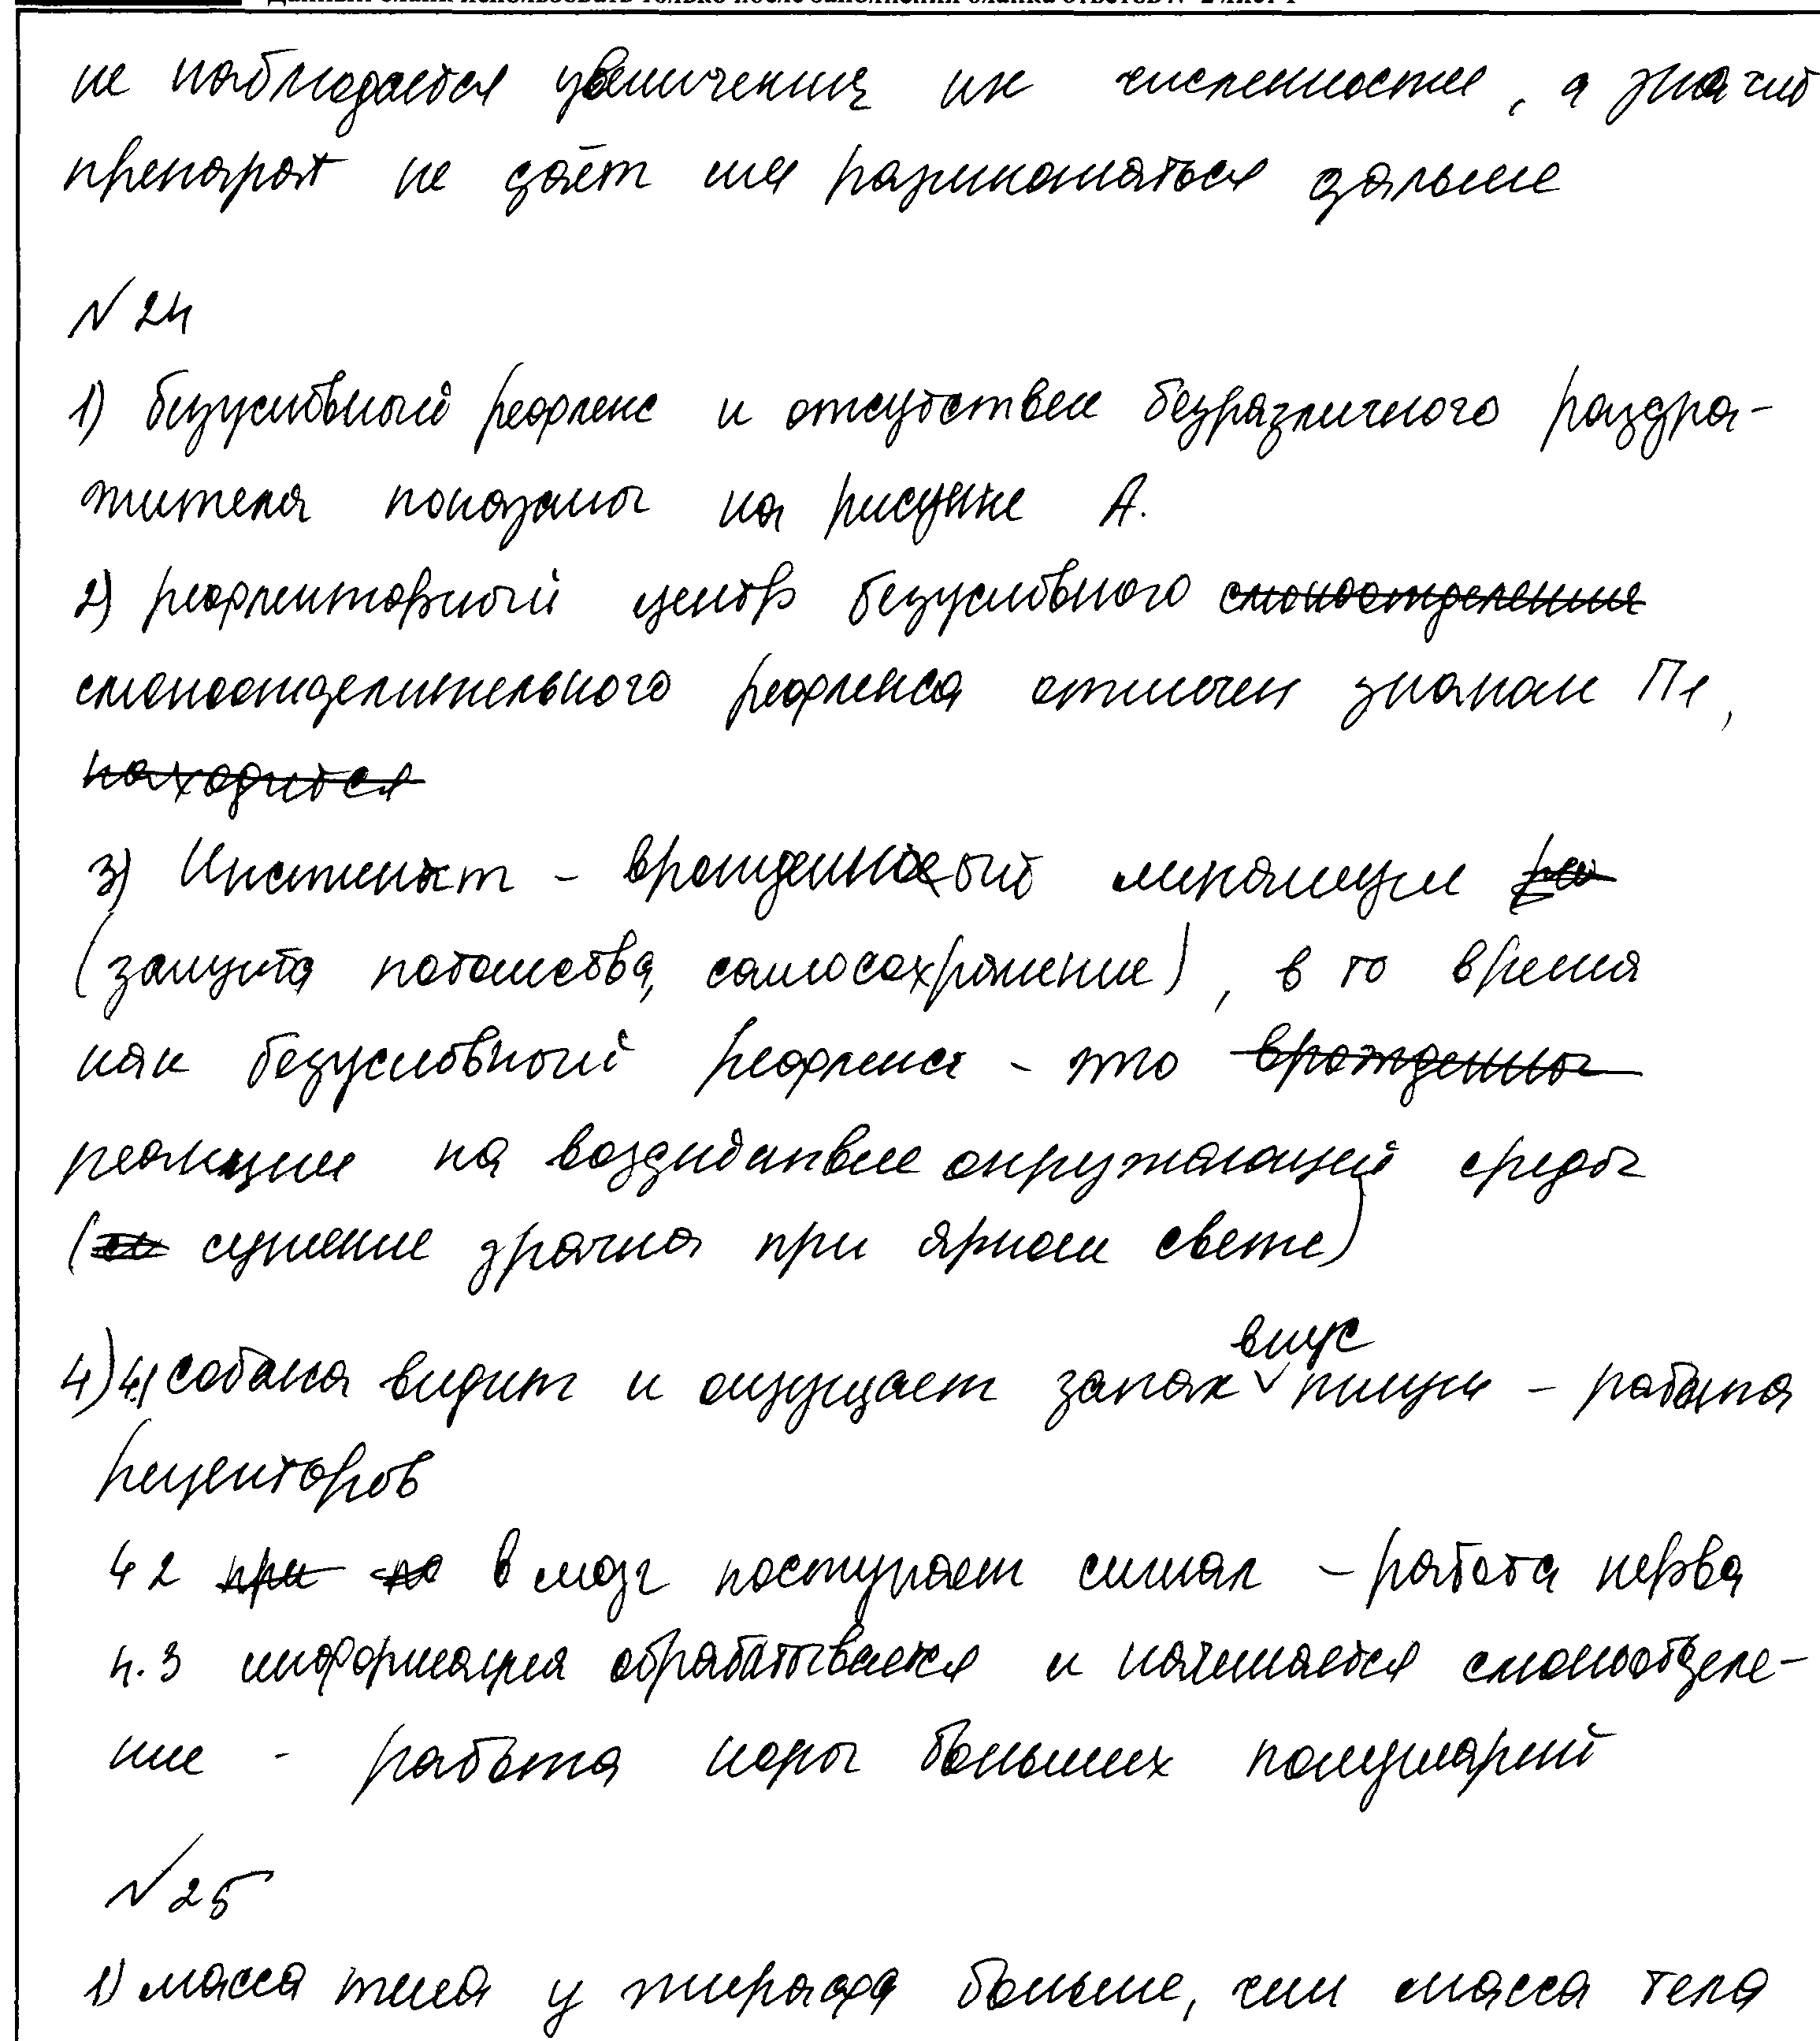 Данный бланк использовать только после заполнения бланка ответов № 2 лист 1
не наблюдается увеличения их численности, а значит
препарат не даёт им размножаться дальше
№ 24
1) безусловный рефлекс и отсутствие безразличного раздра-
жителя показаны на рисунке А.
2) рефлекторный центр безусловного слюноотделения
слюноотделительного рефлекса отмечен знаком П1,
находится
3) Инстинкт - врожденный механизм
(защита потомства, самосохранение), в то время
как безусловный рефлекс - это врожденны
реакции на воздействие окружающей среды
(сужение зрачка при ярком свете)
4) 4.1 собака видит и ощущает запах вкус пищи - работа
рецепторов
4.2 при по в мозг поступает сигнал - работа нерва
4.3 информация обрабатывается и начинается слюноотделе-
ние - работа коры больших полушарий
№ 25
1) масса тела у жирафа больше, чем масса тела